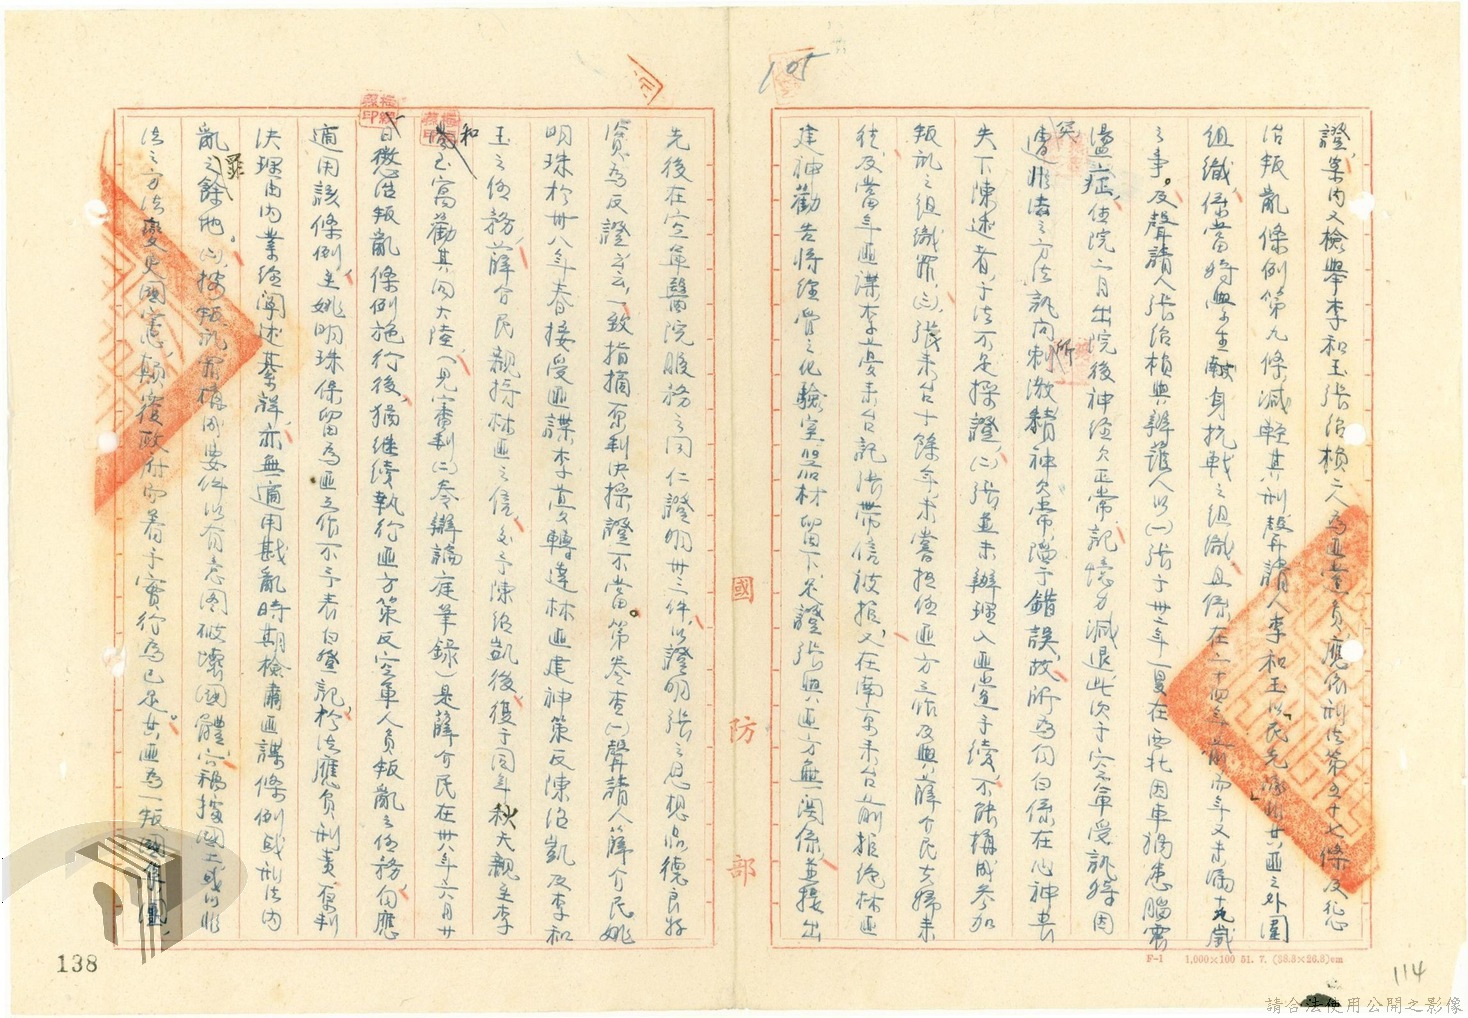 105
證，案內又檢舉李和玉張治楨二人為匪黨員應依刑法第五十七條及懲
治叛亂條例第九條減輕其刑聲請人李和玉以「民先隊」共匪之外圍
組織係當時學生獻身抗戰之組織且係在二十四年前而年又未滿十九歲
之事。及聲請人張治楨與辯護人以(一)張于卅二年夏在西北因車禍患腦震
盪症住院六月出院後神經欠正常記憶力減退此次于空軍受訊時因
遭非法之方法訊問刺激精神失常陷于錯誤故所為自白係在心神喪
失下陳述者，于法不足採證(二)張並未辦理入匪黨手續，不能構成參加
叛亂之組織罪，(三)張來台十餘年未嘗担任匪方工作及與薛介民夫婦來
往及當年匪諜李 來台託張帶信被拒，又在南京來台前拒絕林匪
建神勸告將經管之化驗室器材留下各證張與匪方無關係並提出
先後在空軍醫院服務之同仁證明卅三件以證明張之思想品德良好
資為反證云云，一致指摘原判決採證不當。第查(一)聲請人薛介民姚
明珠於卅八年春接受匪諜李 轉達林匪建神策反陳紹凱及李和
玉之任務，薛介民親持林匪之信交予陳紹凱後復于同年秋天親至李
和玉寓勸其向大陸（見審判(二)卷辯論庭筆錄）是薛介民在卅八年六月廿一
日懲治叛亂條例施行後，猶繼續執行匪方策反空軍人員叛亂之任務，自應
適用該條例，至姚明珠保留為匪工作不予表白登記，於法應負刑責原判
決理由內業經闡述綦詳，亦無適用戡亂時期檢肅匪諜條例或刑法內
亂罪之餘地。(二)按叛亂罪構成要件以有意圖破壞國體竊據國土或以非
法之方法變更國憲，顛覆政府而着手實行為已足。共匪為一叛國集團，
國防部
F-1　1,000×100 51. 7. (38.5×26.8)cm
138
114
請合法使用公開之影像